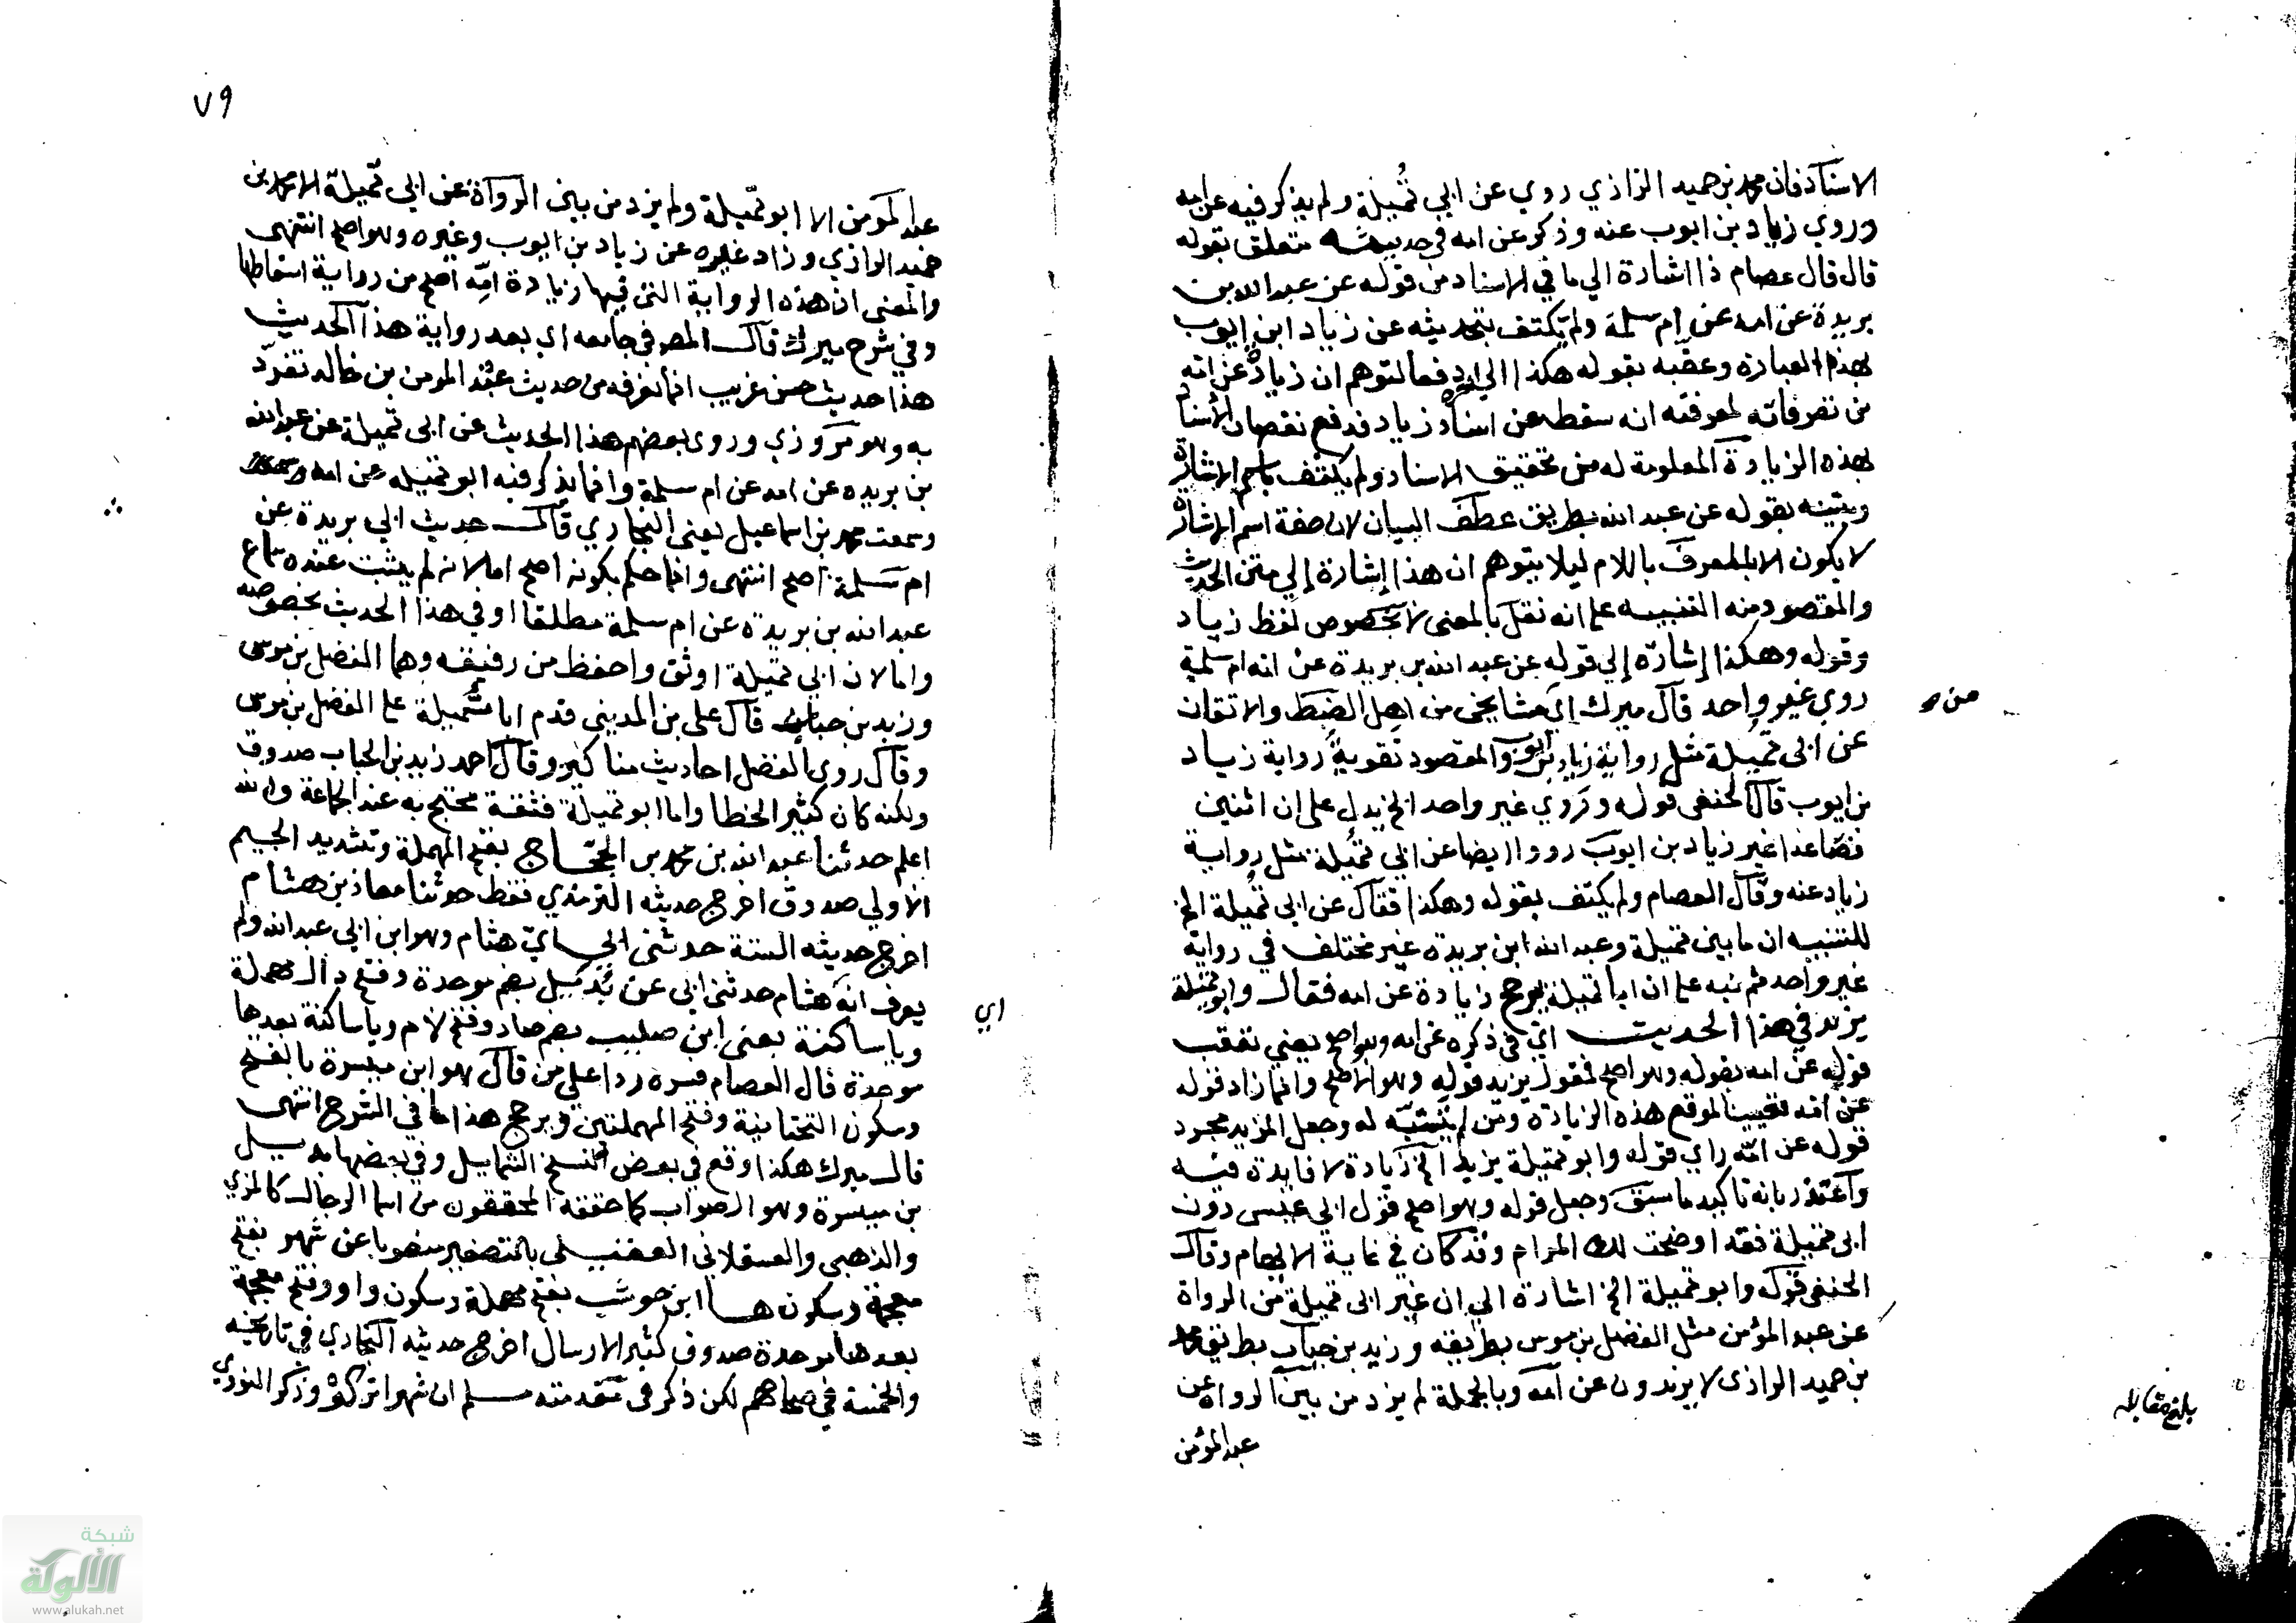 الاسناد فان محمد بن حميد الرازي روي عن ابي تُميلة ولم يذكر فيه عن امه
وروي زياد بن ايوب عنه وذكر عن امه في حديثه متعلق بقوله
قال قال عصام ذا اشارة الي ما في الاسناد من قوله عن عبد الله بن
بريدة عن امه عن ام سلمة ولم يكتف بتحديثه عن زياد ابن ايوب
بهذه العبارة وعقبه بقوله هكذا الي اخره دفعا لتوهم ان زيادة عن امه
من تصرفاته لمعرفته انه سقط عن اسناد زياد فدفع نقصان الاسناد
بهذه الزيادة المعلومة له من تحقيق الاسناد ولم يكتف باسم الاشارة
وبينه بقوله عن عبد الله بطريق عطف البيان لان صفة اسم الاشارة
لا يكون الا بالمعرف باللام ليلا يتوهم ان هذا إشارة إلي متن الحديث
والمقصود منه التنبيه علي انه نقل بالمعنى لا بخصوص لفظ زياد
وقوله وهكذا إشارة إلي قوله عن عبد الله بن بريدة عن امه ام سلمة
روي غير واحد قال ميرك اي مشايخي من اهل الضبط والاتقان
من
عن ابي تميلة مثل رواية زياد بن ايوب والمقصود تقوية رواية زياد
بن ايوب قال الحنفي قوله وروي غير واحد الخ يدل على ان اثنين
فصاعدا غير زياد بن ايوب رووا ايضا عن ابي تميلة مثل رواية
زياد عنه وقال العصام ولم يكتف بقوله وهكذا فقال عن ابي تُميلة الخ
للتنبيه ان ما بين تميلة وعبد الله ابن بريدة غير مختلف في رواية
غير واحد ثم نبه علي ان ابا تميلة يرجح زيادة عن امه فقال وابو تميلة
يزيد في هذا الحديث اي في ذكره عن امه وهو اصح يعني تعقب
قوله عن امه بقوله وهو اصح فمقول يزيد قوله وهو الاصح وانما زاد قوله
عن امه تعيينا لموقع هذه الزيادة ومن لم يتنبّه له وجعل المزيد مجرد
قوله عن امّه راي قوله وابو تميلة يزيد الخ زيادة لا فايدة فيه
واعتذر بانه تاكيد ما سبق وجعل قوله وهو اصح قول ابي عيسى دون
ابي تميلة فقد اوضحت لك المرام وقد كان في غاية الابهام وقال
الحنفي قوله وابو تميلة الخ اشارة الي ان غير ابي تميلة من الرواة
عن عبد المؤمن مثل الفضل بن موسى بطريقه وزيد بن حباب بطريق محمد
بن حميد الرازي لا يزيدون عن امه وبالجملة لم يزد من بين الرواة عن
عبد المؤمن
بلغ مقابلة
٧٩
عبد المومن الا ابو تميلة ولم يزد من بين الرواة عن ابي تميلة الا محمد بن
حميد الرازي وزاد غيره عن زياد بن ايوب وغيره وهو اصح انتهى
والمعنى ان هذه الرواية التي فيها زيادة امّه اصح من رواية اسقاطها
وفي شرح ميرك قال المص في جامعه اي بعد رواية هذا الحديث
هذا حديث حسن غريب انما نعرفه من حديث عبد المومن بن خالد تفرد
به وهو مروزي وروى بعضهم هذا الحديث عن ابي تميلة عن عبد الله
بن بريده عن امه عن ام سلمة وانما يذكر فيه ابو تميله عن امه
وسمعت محمد بن اسماعيل يعني البخاري قال حديث ابي بريدة عن
ام سلمة اصح انتهى وانما حكم بكونه اصح اما لانه لم يثبت عنده سماع
عبد الله بن بريدة عن ام سلمة مطلقا او في هذا الحديث بخصوصه
واما لان ابي تميلة اوثق واحفظ من رفيقه وهما الفضل بن موسى
وزيد بن حباب قال علي بن المديني قدم ابا تُميلة علي الفضل بن موسى
وقال روى الفضل احاديث مناكير وقال احمد زيد بن الحباب صدوق
ولكنه كان كثير الخطا واما ابو تميلة فثقة محتج به عند الجماعة والله
اعلم حدثنا عبد الله بن محمد بن الحجّاج بفتح المهملة وتشديد الجيم
الاولي صدوق اخرج حديثه الترمذي فقط حدثنا معاذ بن هشام
اخرج حديثه الستة حدثني ابي اي هشام وهو ابن ابي عبد الله ولم
يعرف انه هشام حدثني ابي عن بُدَيل بضم موحدة وفتح دال مهملة
اي
وياساكنة يعني ابن صليب بضم صاد وفتح لام وياساكنة بعدها
موحدة قال العصام فسره ردا على من قال هو ابن ميسرة بالفتح
وسكون التحتانية وفتح المهملتين ويرجح هذا ما في الشرح انتهى
قال ميرك هكذا وقع في بعض نسخ الشمايل وفي بعضها بديل
بن ميسرة وهو الصواب كما حققه المحققون من اسما الرجال كالمزي
والذهبي والعسقلاني العقيلي بالتصغير منصوبا عن شهر بفتح
معجمة وسكون ها ابن حوشب بفتح مهملة وسكون واو وفتح معجمة
بعدها موحدة صدوق كثير الارسال اخرج حديثه البخاري في تاريخه
والخمسة في صحاحهم لكن ذكر في مقدمته مسلم ان شهرا تركوه وذكر النووي
شبكة
الألوكة
www.alukah.net